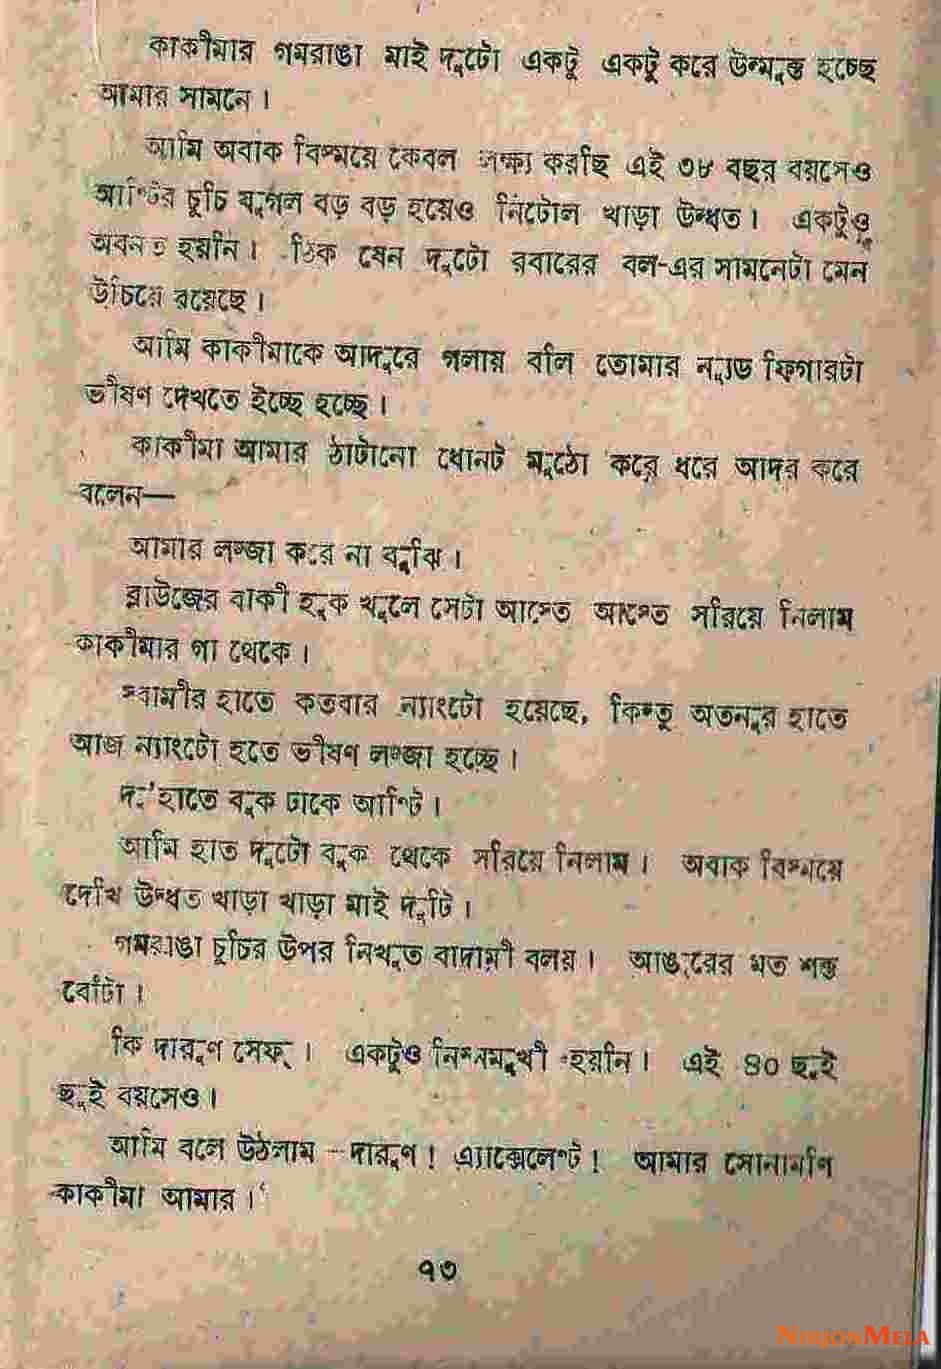 কাকীমার গমরাঙা মাই দুটো একটু একটু করে উন্মুক্ত হচ্ছে
আমার সামনে।
আমি অবাক বিস্ময়ে কেবল লক্ষ্য করছি এই ৩৮ বছর বয়সেও
আন্টির চুচি যুগল বড় বড় হয়েও নিটোল খাড়া উদ্ধত। একটুও
অবনত হয়নি। ঠিক যেন দুটো রবারের বল-এর সামনেটা মেন
উঁচিয়ে রয়েছে।
আমি কাকীমাকে আদুরে গলায় বলি তোমার ন্যুড ফিগারটা
ভীষণ দেখতে ইচ্ছে হচ্ছে।
কাকীমা আমার ঠাটানো ধোনট মুঠো করে ধরে আদর করে
বলেন—
আমার লজ্জা করে না বুঝি।
ব্লাউজের বাকী হুক খুলে সেটা আস্তে আস্তে সরিয়ে নিলাম
কাকীমার গা থেকে।
স্বামীর হাতে কতবার ন্যাংটো হয়েছে, কিন্তু অতনুর হাতে
আজ ন্যাংটো হতে ভীষণ লজ্জা হচ্ছে।
দু'হাতে বুক ঢাকে আন্টি।
আমি হাত দুটো বুক থেকে সরিয়ে নিলাম। অবাক বিস্ময়ে
দেখি উদ্ধত খাড়া খাড়া মাই দুটি।
গমরাঙা চুচির উপর নিখুত বাদামী বলয়। আঙুরের মত শক্ত
বোঁটা।
কি দারুণ সেফ্। একটুও নিম্নমুখী হয়নি। এই ৪০ ছুই
ছুই বয়সেও।
আমি বলে উঠলাম —দারুণ! এ্যাক্সেলেন্ট! আমার সোনামণি
কাকীমা আমার।
৭৩
NIRJONMELA